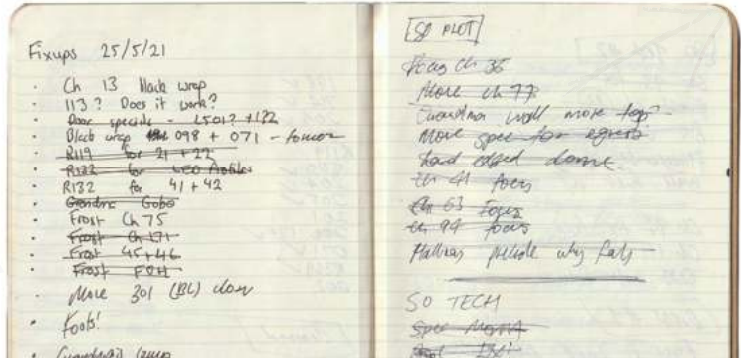 Fixups 25/5/21
Ch 13 black wrap
113? Does it work?
Door specials - L501? +122
Black wrap 098 + 071 -
R119 for 21 + 22
R132 for profiles
R132 for 41 + 42
Grandma Gobo
Frost Ch 75
Frost Ch 171
Frost 45+46
Frost FOH
More 301 (BL) down
Fools!
Grandma's
[SO PLOT]
Focus ch 36
More ch 77
Grandma wall more top?
More spec for egress
Hard edged dome
Ch 41 focus
Ch 63 Focus
Ch 94 focus
why
SO TECH
Spec